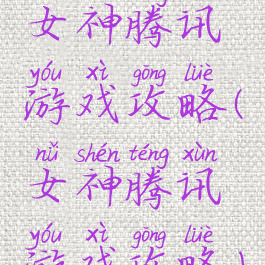 女神腾讯
yóu xì gōng lüè
游戏攻略(
nǚ shén téng xùn
女神腾讯
yóu xì gōng lüè
游戏攻略)